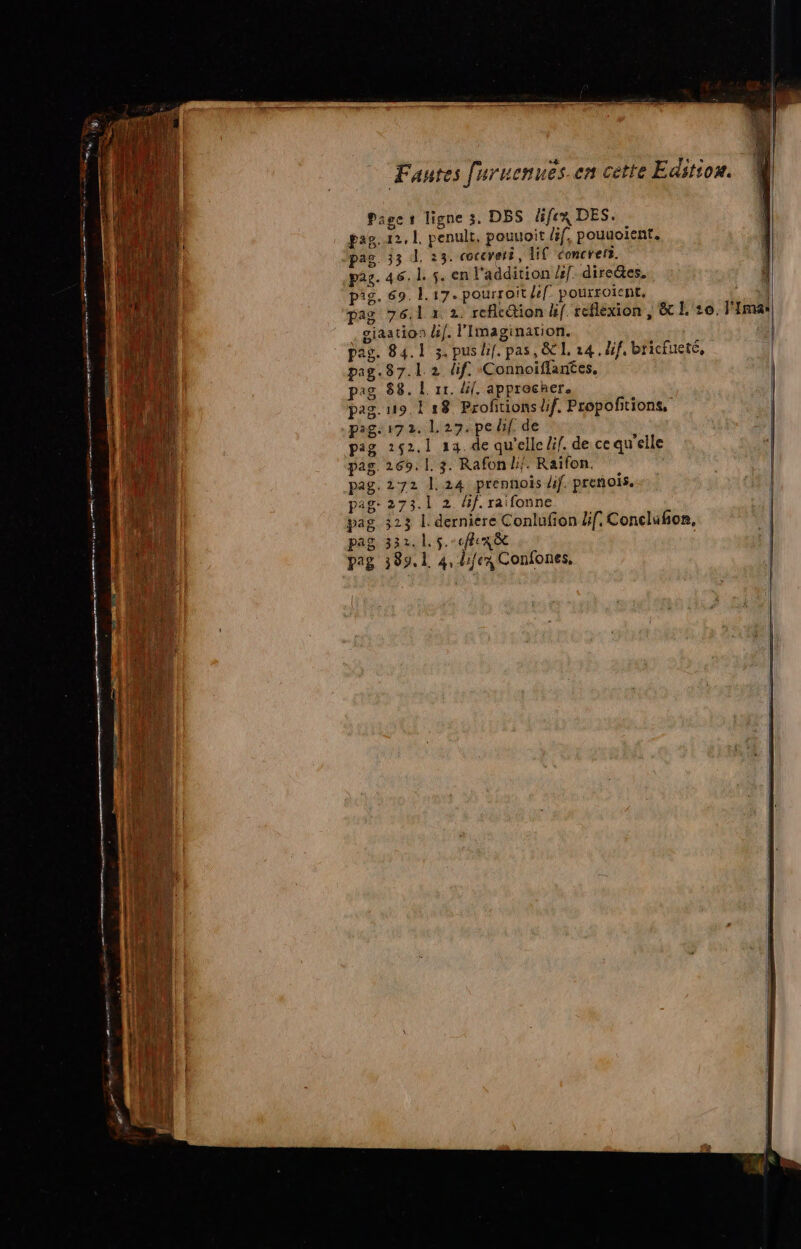 Fautes ſuruenuës en cette Edition.
Page 1 ligne 3. DBS liſez DES.
pag. 12. l. penult. pouuoit liſ. pouuoient.
pag. 33 l. 23. liſ concrets.
pag. 46. l. 5. en l'addition liſ. directes.
pag. 69. l. 17. pourroit liſ. pourroient.
pag 76. l 1. 2. reflection liſ. reflexion, & l. 20. l'Ima-
giaation liſ. l'Imagination.
pag. 84. l 3. pus liſ. pas, & l. 14. liſ. briefueté,
pag. 87. l. 2 liſ. Connoiſſances.
pag 88. l. 11. liſ. approcher.
pag. 119. l 18 Profitions liſ. Propoſitions.
pag. 172. l. 27. pe liſ. de
pag 252. l 14. de qu'elle liſ. de ce qu'elle
pag. 269. l. 3. Raſon liſ. Raiſon.
pag. 272 l. 24 prennois liſ. prenois.
pag. 273. l 2 liſ. raiſonne
pag 323 l. derniere Conluſion liſ. Concluſion,
pag 332. l. 5. &
pag 389. l. 4. liſez Conſones.